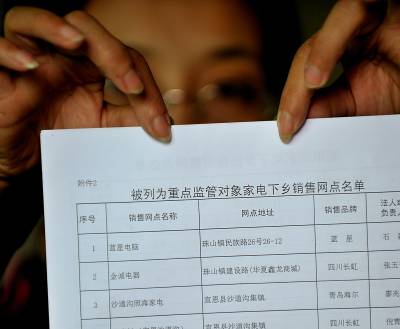 附件2
被列为重点监管对象家电下乡销售网点名单
序号 销售网点名称 网点地址 销售品牌 法人或 负责人
1 蓝星电脑 珠山镇民族路26号26-12 蓝 星 石
2 金诚电器 珠山镇建设路(华夏鑫龙商城) 四川长虹 张玉
3 沙道沟熙海家电 宣恩县沙道沟集镇 青岛海尔
宣恩县沙道沟集镇 四川长虹